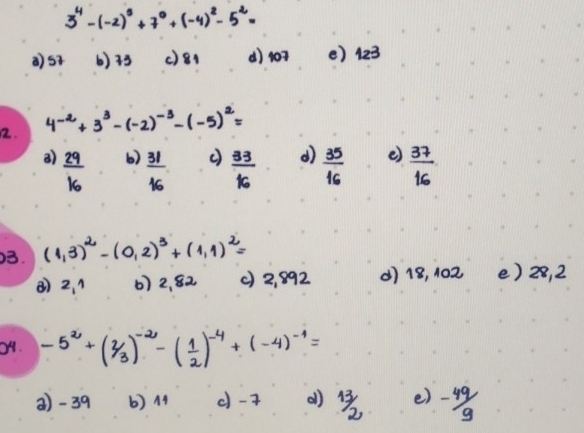 3⁴ - (-2)⁵ + 7⁰ + (-4)² - 5² =
a) 57 b) 73 c) 81 d) 107 e) 123
2. 4⁻² + 3³ - (-2)⁻³ - (-5)² =
a) 29/16 b) 31/16 c) 33/16 d) 35/16 e) 37/16
03. (1,3)² - (0,2)³ + (1,1)² =
a) 2,1 b) 2,82 c) 2,892 d) 18,102 e) 28,2
04. -5² + (2/3)⁻² - (1/2)⁻⁴ + (-4)⁻¹ =
a) -39 b) 11 c) -7 d) 13/2 e) -49/9